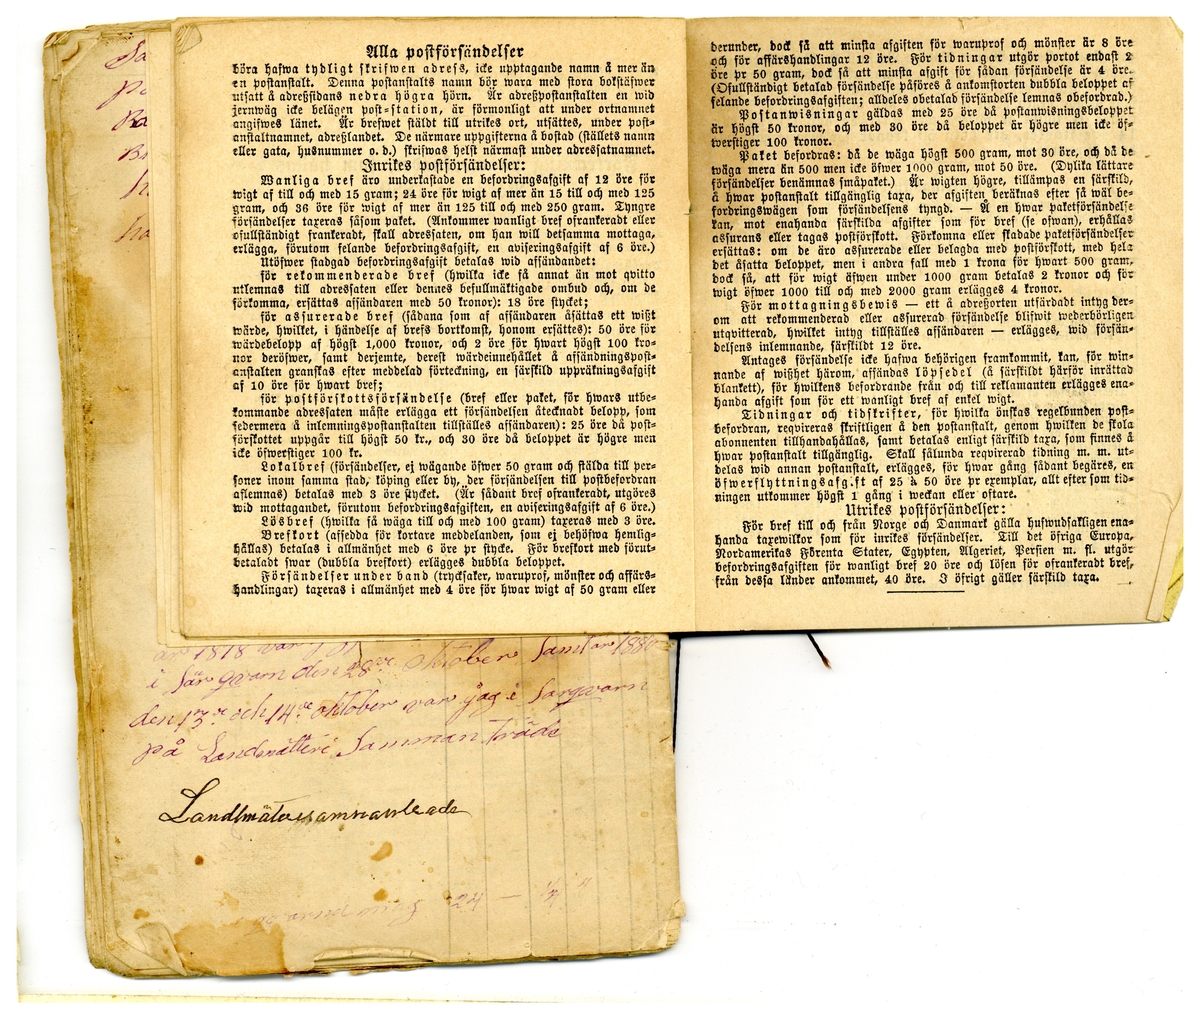 Alla postförsändelser
böra hafwa tydligt skrifwen adress, icke upptagande namn å mer än
en postanstalt. Denna postanstalts namn bör wara med stora bokstäfwer
utsatt å adreßsidans nedra högra hörn. Är adreßpostanstalten en wid
jernwäg icke belägen post-station, är förmonligt att under ortnamnet
angifwes länet. Är brefwet stäldt till utrikes ort, utsättes, under post-
anstaltnamnet, adreßlandet. De närmare uppgifterna å bostad (ställets namn
eller gata, husnummer o. d.) skrifwas helst närmast under adressatnamnet.
Inrikes postförsändelser:
Wanliga bref äro underkastade en befordringsafgift af 12 öre för
wigt af till och med 15 gram; 24 öre för wigt af mer än 15 till och med 125
gram, och 36 öre för wigt af mer än 125 till och med 250 gram. Tyngre
försändelser taxeras såsom paket. (Ankommer wanligt bref ofrankeradt eller
ofullständigt frankeradt, skall adressaten, om han will detsamma mottaga,
erlägga, förutom felande befordringsafgift, en aviseringsafgift af 6 öre.)
Utöfwer stadgad befordringsafgift betalas wid afsändandet:
för rekommenderade bref (hwilka icke få annat än mot qvitto
utlemnas till adressaten eller dennes befullmäktigade ombud och, om de
förkomma, ersättas afsändaren med 50 kronor): 18 öre stycket;
för assurerade bref (sådana som af afsändaren åsättas ett wißt
wärde, hwilket, i händelse af brefs bortkomst, honom ersättes): 50 öre för
wärdebelopp af högst 1,000 kronor, och 2 öre för hwart högst 100 kro-
nor deröfwer, samt derjemte, derest wärdeinnehållet å afsändningspost-
anstalten granskas efter meddelad förteckning, en särskild uppräkningsafgift
af 10 öre för hwart bref;
för postförskottsförsändelse (bref eller paket, för hwars utbe-
kommande adressaten måste erlägga ett försändelsen åtecknadt belopp, som
sedermera å inlemningspostanstalten tillställes afsändaren): 25 öre då post-
förskottet uppgår till högst 50 kr., och 30 öre då beloppet är högre men
icke öfwerstiger 100 kr.
Lokalbref (försändelser, ej wägande öfwer 50 gram och stälda till per-
soner inom samma stad, köping eller by, der försändelsen till postbefordran
aflemnas) betalas med 3 öre stycket. (Är sådant bref ofrankeradt, utgöres
wid mottagandet, förutom befordringsafgiften, en aviseringsafgift af 6 öre.)
Lösbref (hwilka få wäga till och med 100 gram) taxeras med 3 öre.
Brefkort (afsedda för kortare meddelanden, som ej behöfwa hemlig-
hållas) betalas i allmänhet med 6 öre pr stycke. För brefkort med förut-
betaladt swar (dubbla brefkort) erlägges dubbla beloppet.
Försändelser under band (trycksaker, waruprof, mönster och affärs-
handlingar) taxeras i allmänhet med 4 öre för hwar wigt af 50 gram eller
derunder, dock så att minsta afgiften för waruprof och mönster är 8 öre
och för affärshandlingar 12 öre. För tidningar utgör portot endast 2
öre pr 50 gram, dock så att minsta afgift för sådan försändelse är 4 öre.
(Ofullständigt betalad försändelse påföres å ankomstorten dubbla beloppet af
felande befordringsafgiften; alldeles obetalad försändelse lemnas obefordrad.)
Postanwisningar gäldas med 25 öre då postanwisningsbeloppet
är högst 50 kronor, och med 30 öre då beloppet är högre men icke öf-
werstiger 100 kronor.
Paket befordras: då de wäga högst 500 gram, mot 30 öre, och då de
wäga mera än 500 men icke öfwer 1000 gram, mot 50 öre. (Dylika lättare
försändelser benämnas småpaket.) Är wigten högre, tillämpas en särskild,
å hwar postanstalt tillgänglig taxa, der afgiften beräknas efter så wäl be-
fordringswägen som försändelsens tyngd. — Å en hwar paketförsändelse
kan, mot enahanda särskilda afgifter som för bref (se ofwan), erhållas
assurans eller tagas postförskott. Förkomna eller skadade paketförsändelser
ersättas: om de äro assurerade eller belagda med postförskott, med hela
det åsatta beloppet, men i andra fall med 1 krona för hwart 500 gram,
dock så, att för wigt äfwen under 1000 gram betalas 2 kronor och för
wigt öfwer 1000 till och med 2000 gram erlägges 4 kronor.
För mottagningsbewis — ett å adreßorten utfärdadt intyg der-
om att rekommenderad eller assurerad försändelse blifwit wederbörligen
utqvitterad, hwilket intyg tillställes afsändaren — erlägges, wid försän-
delsens inlemnande, särskildt 12 öre.
Antages försändelse icke hafwa behörigen framkommit, kan, för win-
nande af wißhet härom, afsändas löpsedel (å särskildt härför inrättad
blankett), för hwilkens befordrande från och till reklamanten erlägges ena-
handa afgift som för ett wanligt bref af enkel wigt.
Tidningar och tidskrifter, för hwilka önskas regelbunden post-
befordran, reqvireras skriftligen å den postanstalt, genom hwilken de skola
abonnenten tillhandahållas, samt betalas enligt särskild taxa, som finnes å
hwar postanstalt tillgänglig. Skall sålunda reqvirerad tidning m. m. ut-
delas wid annan postanstalt, erlägges, för hwar gång sådant begäres, en
öfwerflyttningsafg.ft af 25 à 50 öre pr exemplar, allt efter som tid-
ningen utkommer högst 1 gång i weckan eller oftare.
Utrikes postförsändelser:
För bref till och från Norge och Danmark gälla hufwudsakligen ena-
handa taxewilkor som för inrikes försändelser. Till det öfriga Europa,
Nordamerikas Förenta Stater, Egypten, Algeriet, Persien m. fl. utgör
befordringsafgiften för wanligt bref 20 öre och lösen för ofrankeradt bref,
från dessa länder ankommet, 40 öre. I öfrigt gäller särskild taxa.
år 1818 var
i Särqvarn den 28de oktober Samt år 1880
den 13de och 14de oktober var jag i Sarqvarn
på Landmätteri Samman träde
Landtmäterisamnanteade
24 — 1/4 "